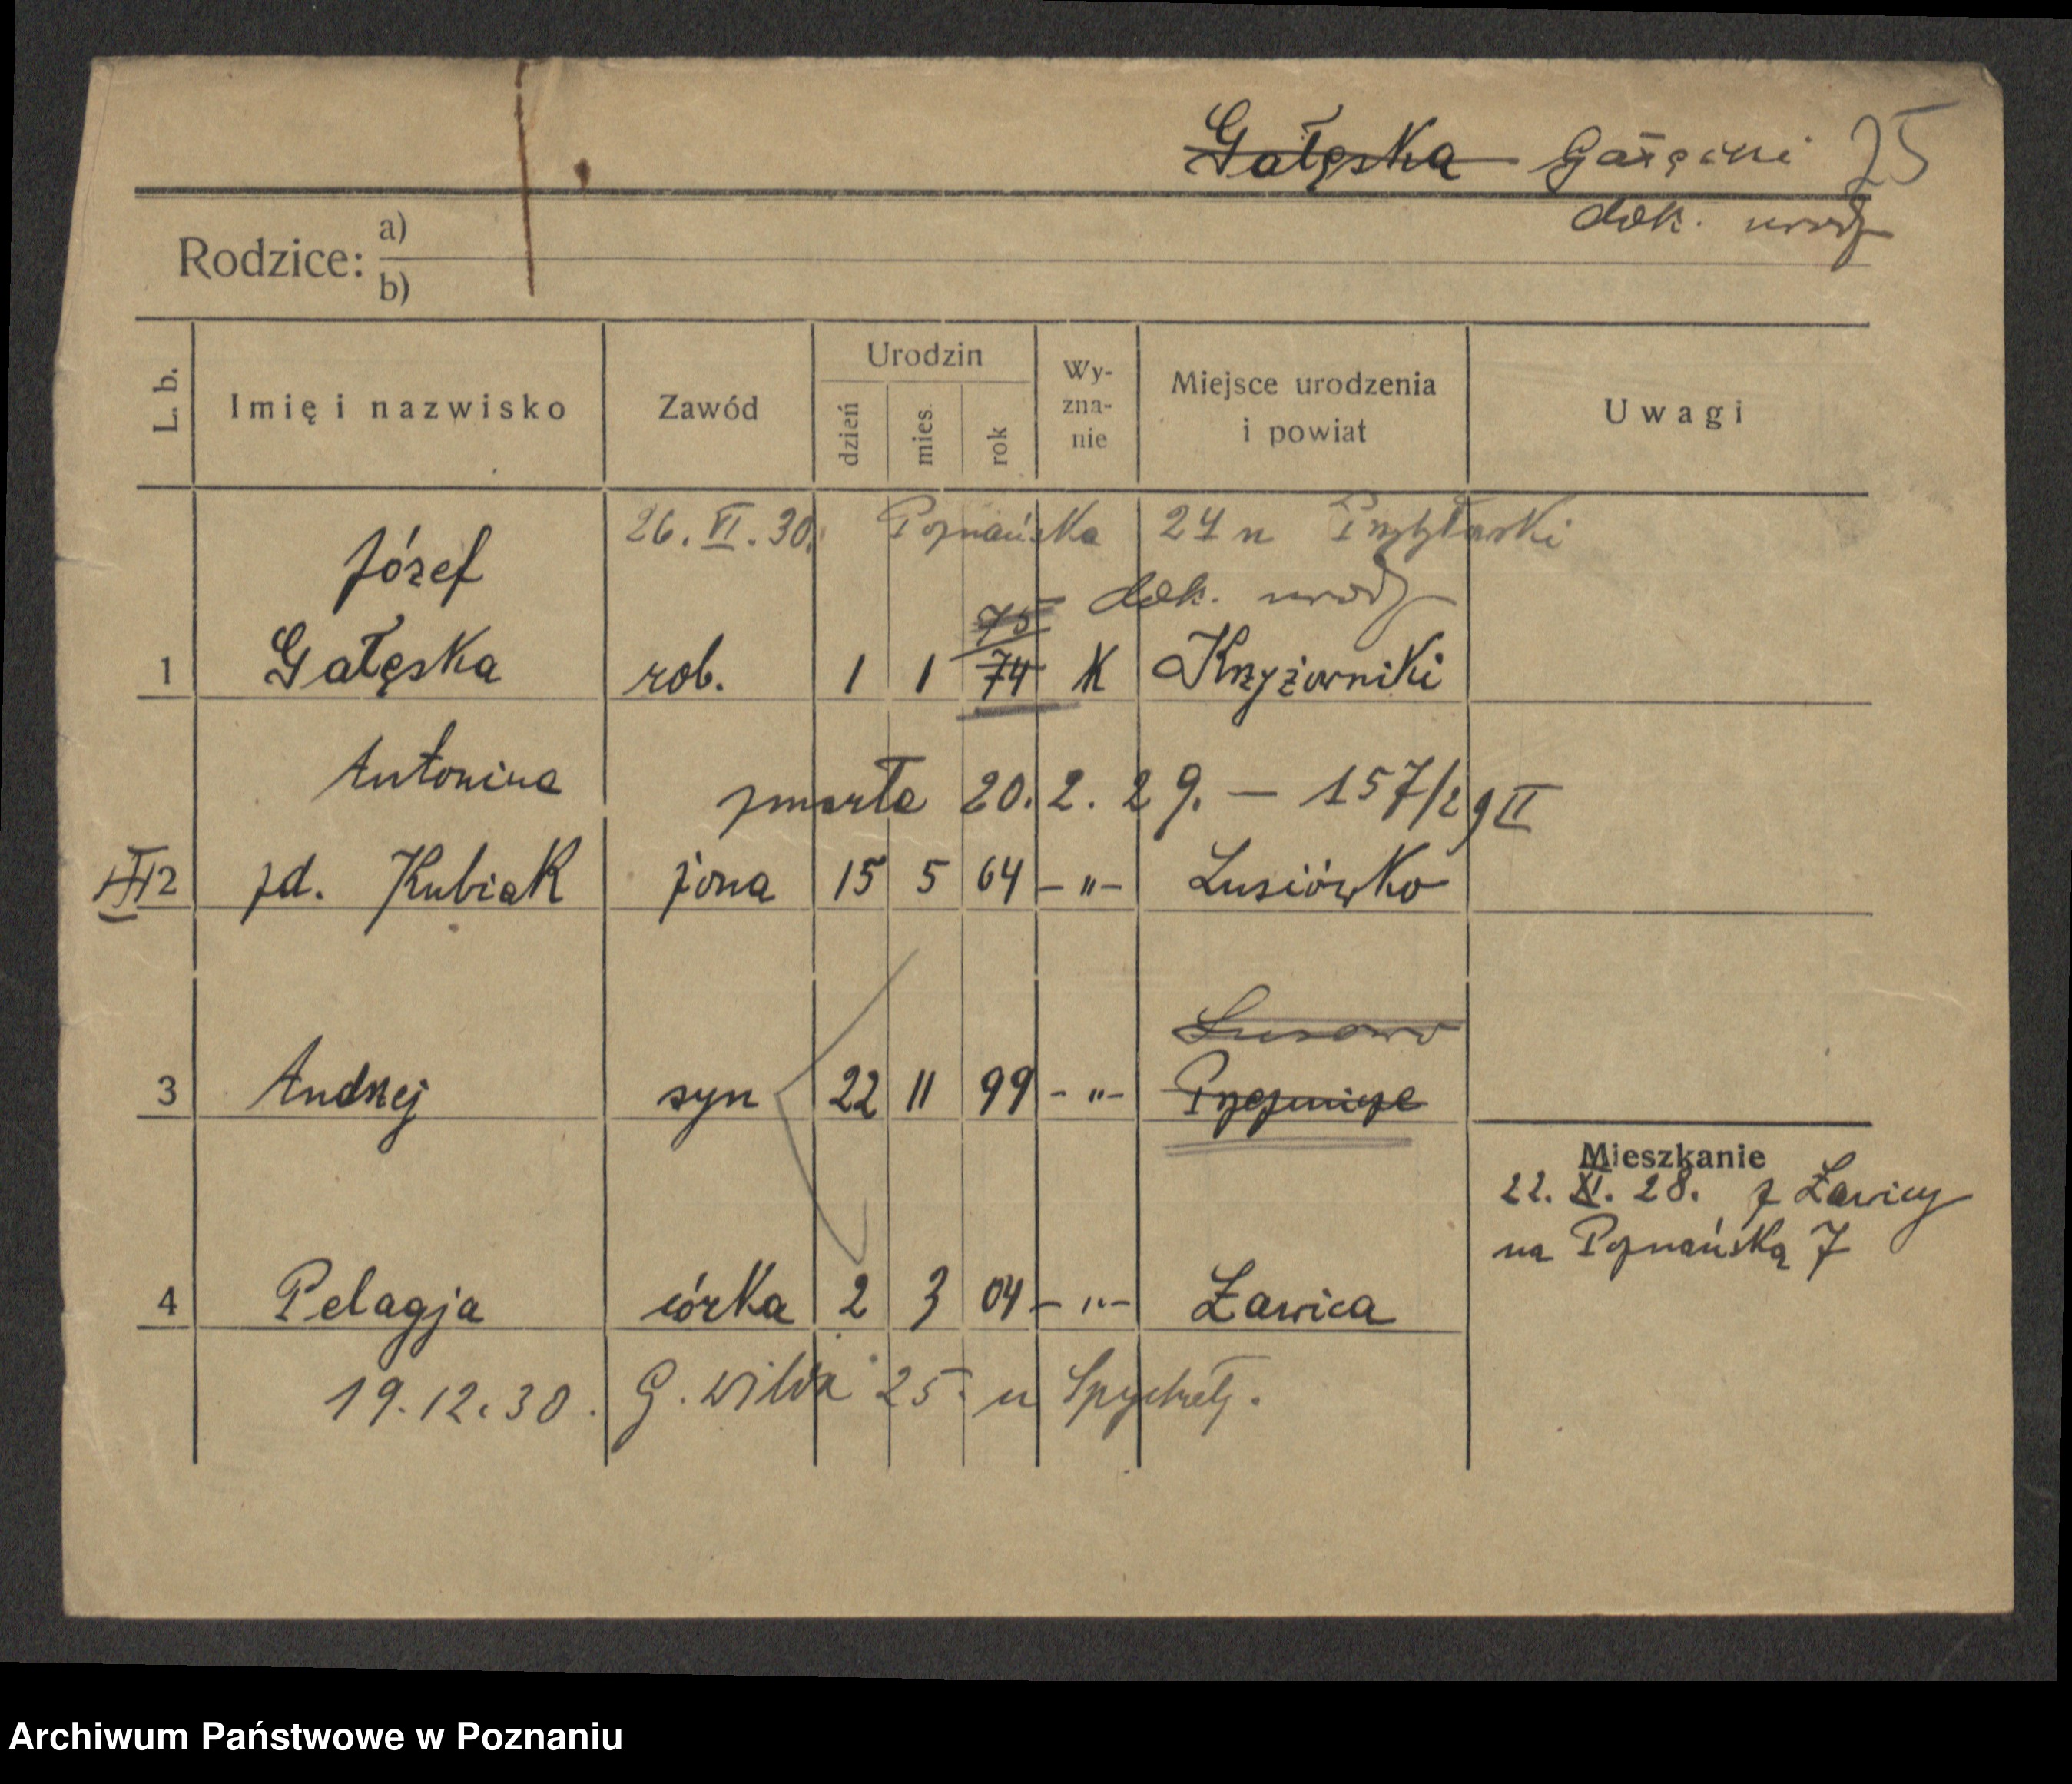 Gałęska Gałęcki 25
dok. urodz
Rodzice: a)
b)
L. b. Imię i nazwisko Zawód Urodzin dzień mies. rok Wy-zna-nie Miejsce urodzenia i powiat Uwagi
26. VI. 30. Poznańska 24 u
Józef dok. urodz
75
1 Gałęska rob. 1 1 74 K Krzyżowniki
Antonina zmarła 20. 2. 29. — 157/29 II
2 zd. Kubiak żona 15 5 64 – " – Lusiówko
Lusowo
3 Andrzej syn 22 11 99 - " - Przeźmierze
Mieszkanie
22. XI. 28. z Ławicy
na Poznańską 7
4 Pelagja córka 2 3 04 – " – Ławica
19.12.30. G. Wilda 25 u
Archiwum Państwowe w Poznaniu